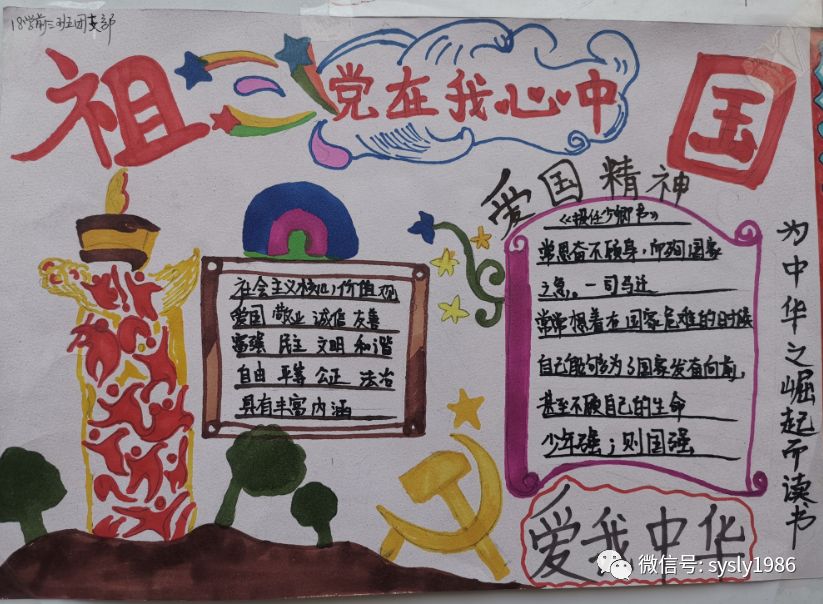 18学前二班团支部
祖
党在我心中
国
爱国精神
《报任少卿书》
常思奋不顾身,而殉国家
之急。一司马迁
常常想着在国家危难的时候
自己能够为了国家发有向前,
甚至不顾自己的生命
少年强;则国强
社会主义核心价值观
爱国 敬业 诚信 友善
富强 民主 文明 和谐
自由 平等 公正 法治
具有丰富内涵
为中华之崛起而读书
爱我中华
微信号: sysly1986